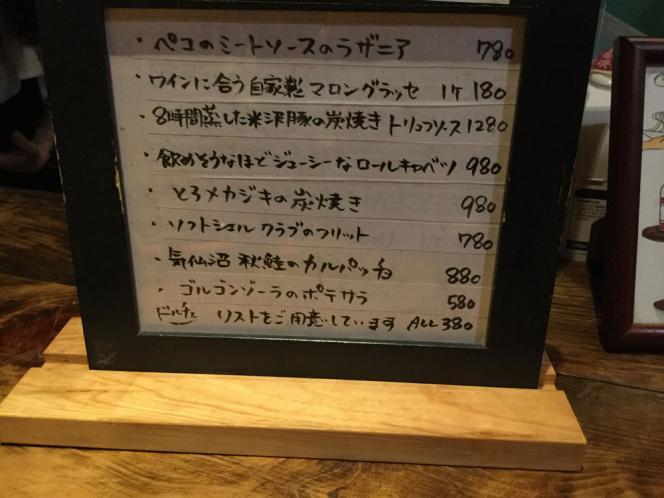 ・ペコのミートソースのラザニア 780
・ワインに合う自家製マロングラッセ 1ケ 180
・8時間蒸した米沢豚の炭焼き トリュフソース 1280
・飲めそうなほどジューシーなロールキャベツ 980
・とろメカジキの炭焼き 980
・ソフトシェルクラブのフリット 780
・気仙沼 秋鮭のカルパッチョ 880
・ゴルゴンゾーラのポテサラ 580
ドルチェ リストをご用意しています ALL 380